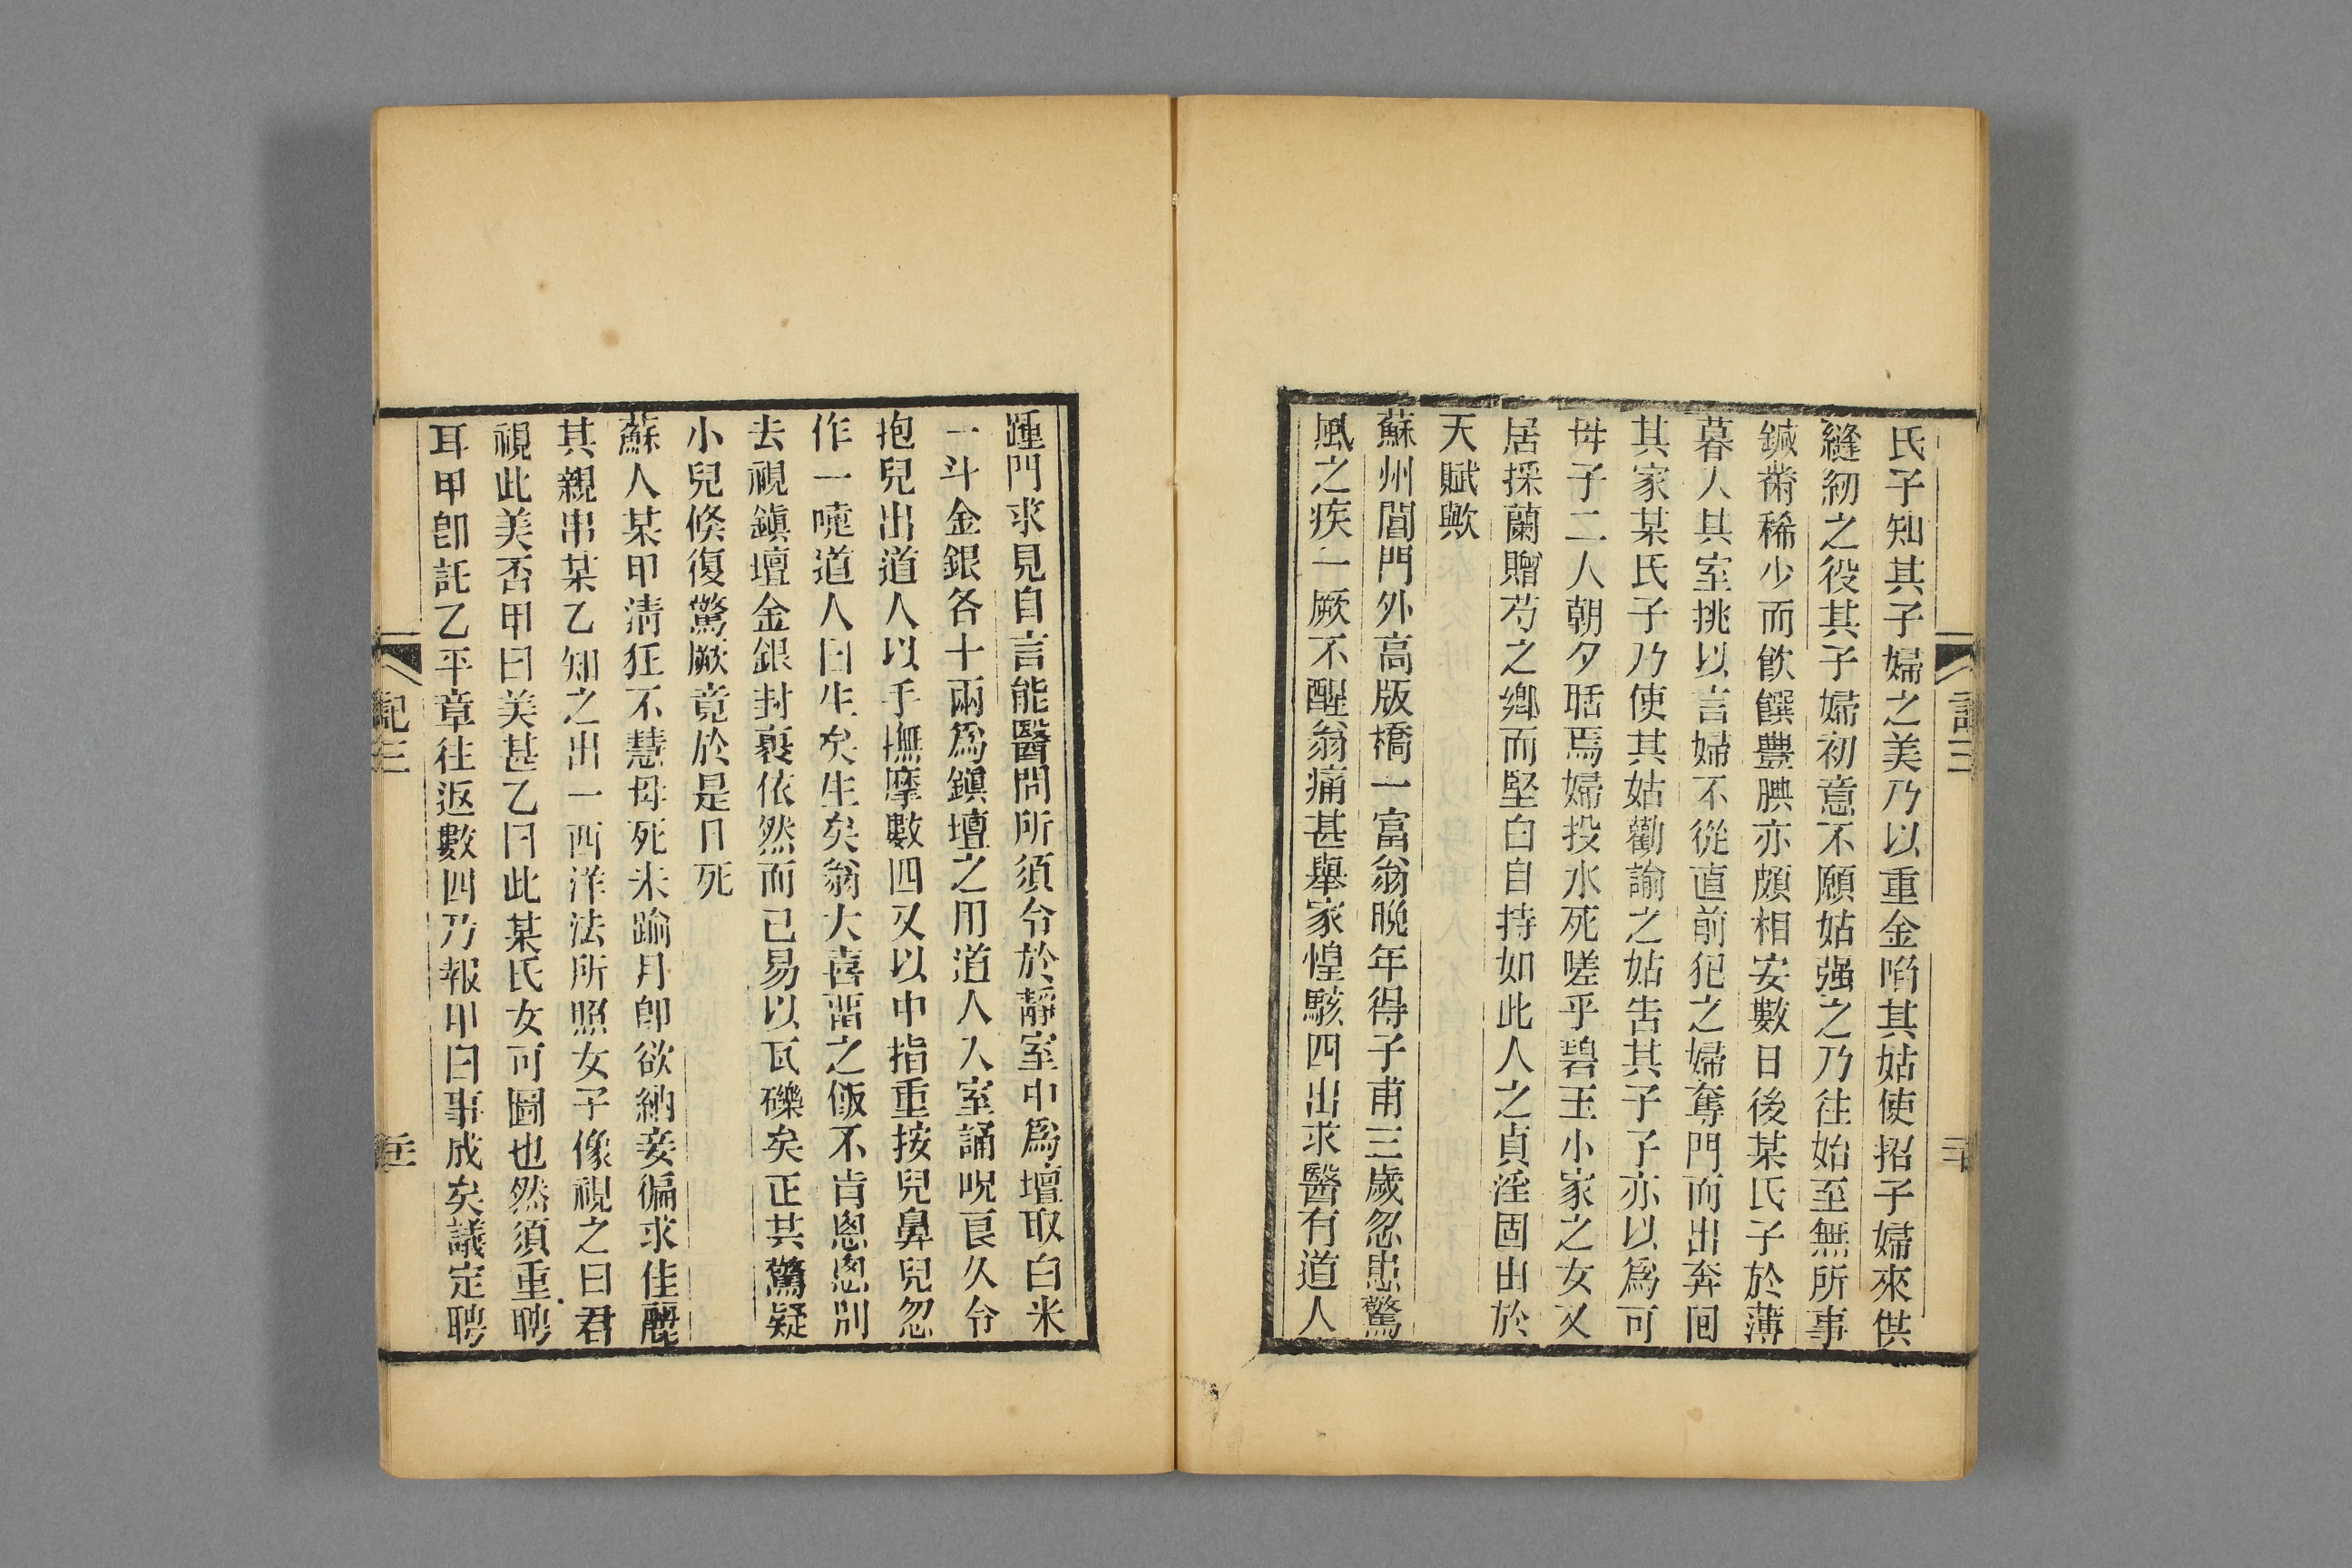 氏子知其子婦之美乃以重金陷其姑使招子婦來供
縫紉之役其子婦初意不願姑强之乃往始至無所事
鍼黹稀少而飮饌豐腆亦頗相安數日後某氏子於薄
暮人其室挑以言婦不從直前犯之婦奪門而出奔回
其家某氏子乃使其姑勸諭之姑吿其子子亦以爲可
母子二人朝夕聒焉婦投水死嗟乎碧玉小家之女又
居採蘭贈芍之鄉而堅白自持如此人之貞淫固由於
天賦歟
蘇州閶門外高版橋一富翁晚年得子甫三歲忽患驚
風之疾一厥不醒翁痛甚舉家惶駭四出求醫有道人
記三
踵門求見自言能醫問所須令於靜室中爲壇取白米
一斗金銀各十兩爲鎭壇之用道人入室誦呪良久令
抱兒出道人以手撫摩數四又以中指重按兒鼻兒忽
作一嚏道人曰生矣生矣翁大喜畱之飯不肯悤悤別
去視鎭壇金銀封裹依然而已易以瓦礫矣正共驚疑
小兒倏復驚厥竟於是日死
蘇人某甲淸狂不慧母死未踰月卽欲納妾徧求佳麗
其親串某乙知之出一西洋法所照女子像視之曰君
視此美否甲曰美甚乙曰此某氏女可圖也然須重聘
耳甲卽託乙平章往返數四乃報甲曰事成矣議定聘
記三